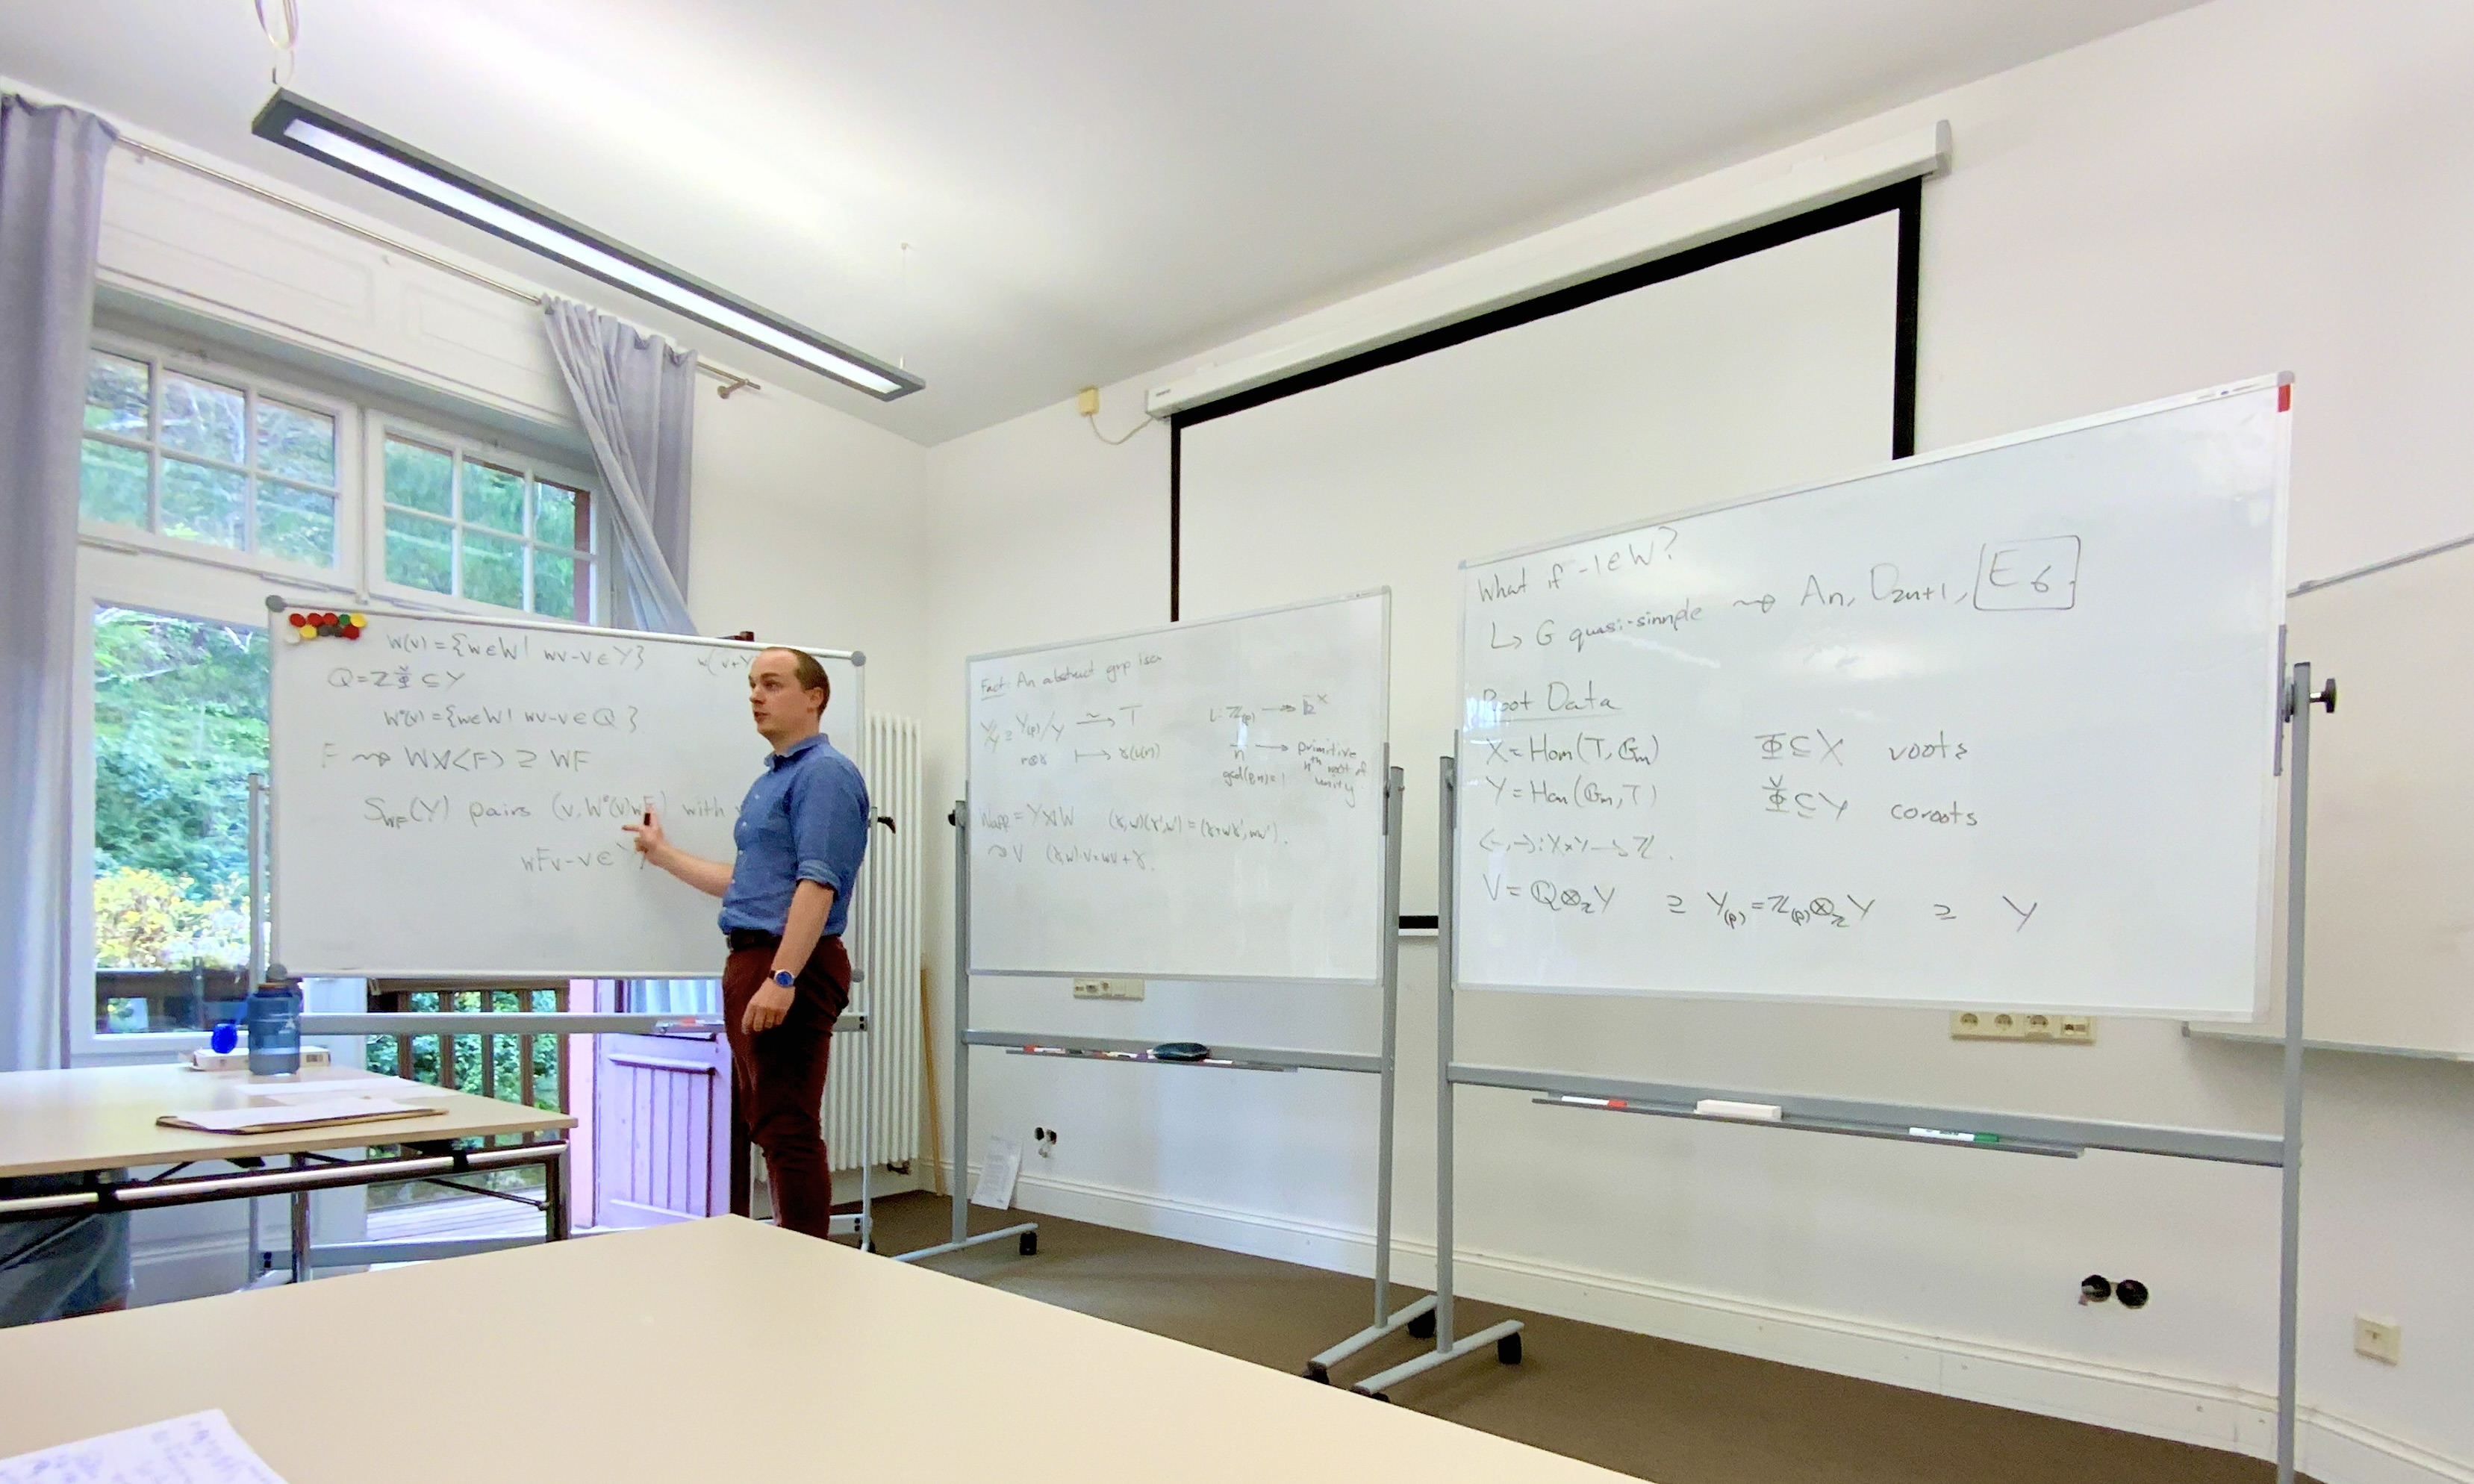 W(v) = {w∈W | wv-v ∈ Y}
Q = ZΦ̌ ⊆ Y
W°(v) = {w∈W | wv-v ∈ Q}
F ⇝ W⋊⟨F⟩ ⊇ WF
S_WF(Y) pairs (v, W°(v)wF) with
wFv-v ∈ Y
Fact: An abstract grp
Y_(p)/Y ⥲ T
r⊗γ ⟼ γ(ι(r))
ι: Z_(p) → k^×
n → primitive nth root of unity
W_aff = Y⋊W (γ,w)(γ',w') = (γ+wγ', ww').
↷ V (γ,w)·v = wv+γ.
What if -1∈W?
↳ G quasi-simple ⇝ An, D2n+1, E6.
Root Data
X = Hom(T, Gm) Φ⊆X roots
Y = Hom(Gm, T) Φ̌⊆Y coroots
⟨-,-⟩: X×Y → Z.
V = Q⊗_Z Y ⊇ Y_(p) = Z_(p)⊗_Z Y ⊇ Y